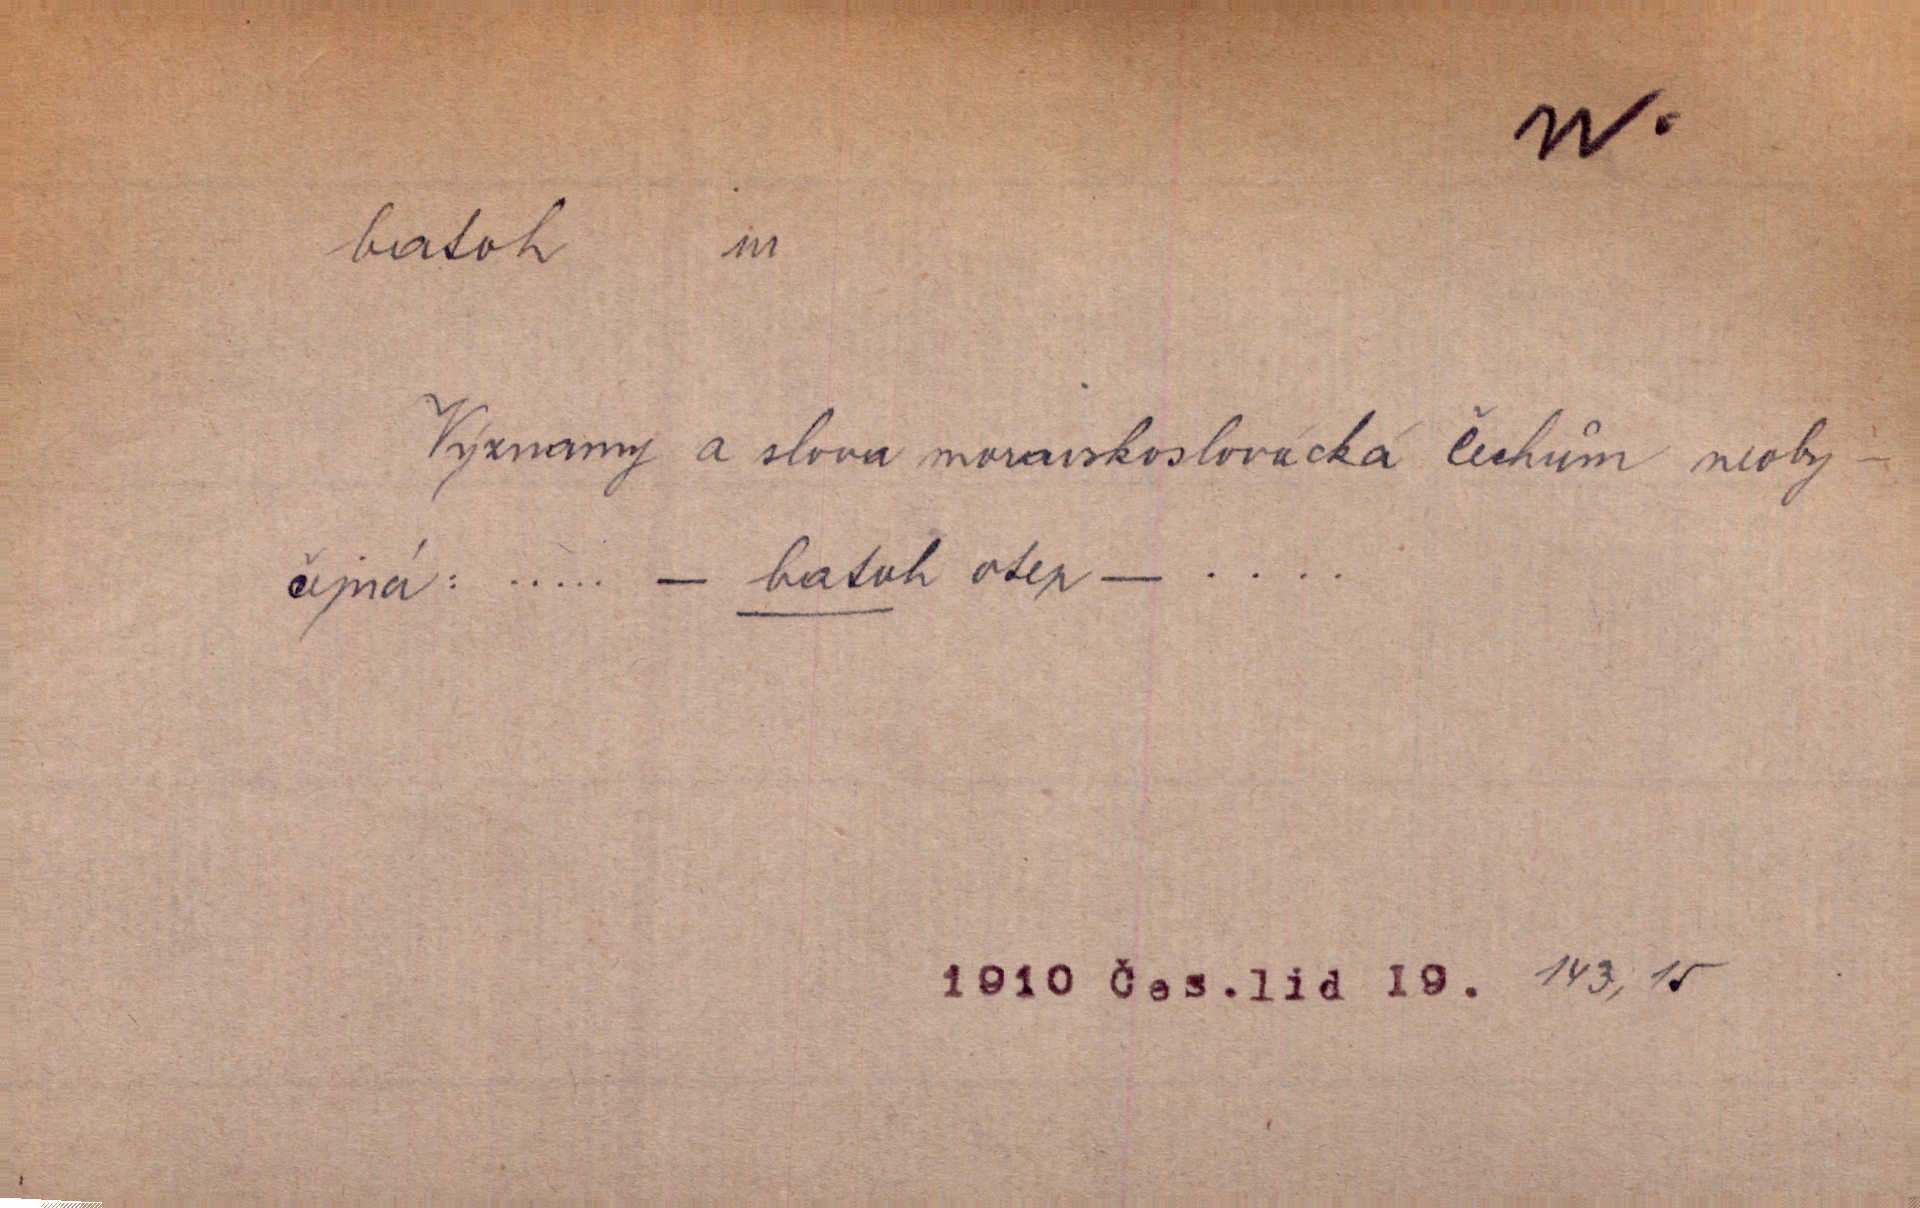 W.
batoh m
Významy a slova moravskoslovácká Čechům neoby-
čejná: ..... — batoh otep — ....
1910 Čes.lid I9. 143, 15